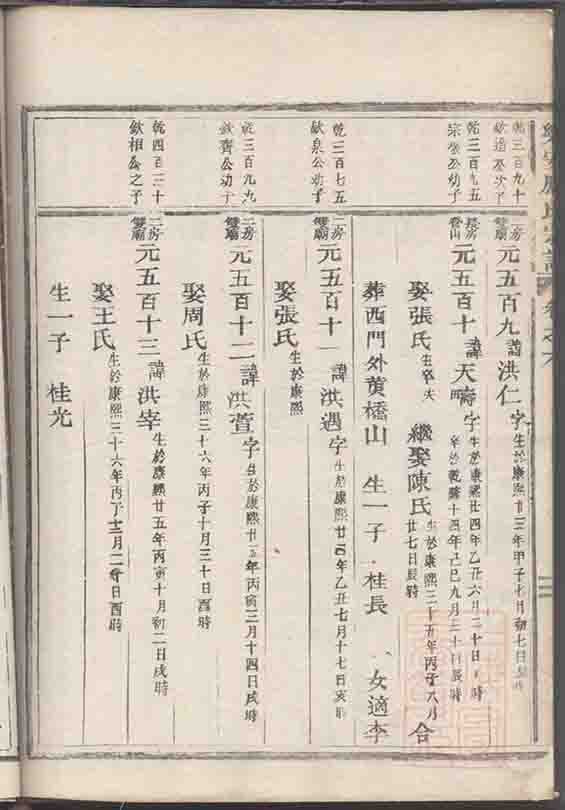 乾三百九十
欽造公次子
乾三百九五
公幼子
乾三百七五
欽泉公幼子
乾三百九九
欽齊公幼子
乾四百三十
欽相公之子
二房雙廟元五百九諱洪仁字生於康熙廿三年甲子七月初七日
長房元五百十諱天壽字生於康熙廿四年乙丑六月二十日時
卒於乾隆十四年己巳九月三十日辰時
娶張氏生卒失 繼娶陳氏生於康熙三十五年丙子八月廿七日辰時 合
葬西門外黄橋山 生一子 桂長 一女適李
二房雙廟元五百十一諱洪遇字生於康熙廿四年乙丑七月十七日亥時
娶張氏生於康熙
二房雙廟元五百十二諱洪萱字生於康熙廿五年丙寅三月十四日戌時
娶周氏生於康熙三十六年丙子十月三十日酉時
二房雙廟元五百十三諱洪宰生於康熙廿五年丙寅十月初二日戌時
娶王氏生於康熙三十六年丙丁十二月二日酉時
生一子 桂光